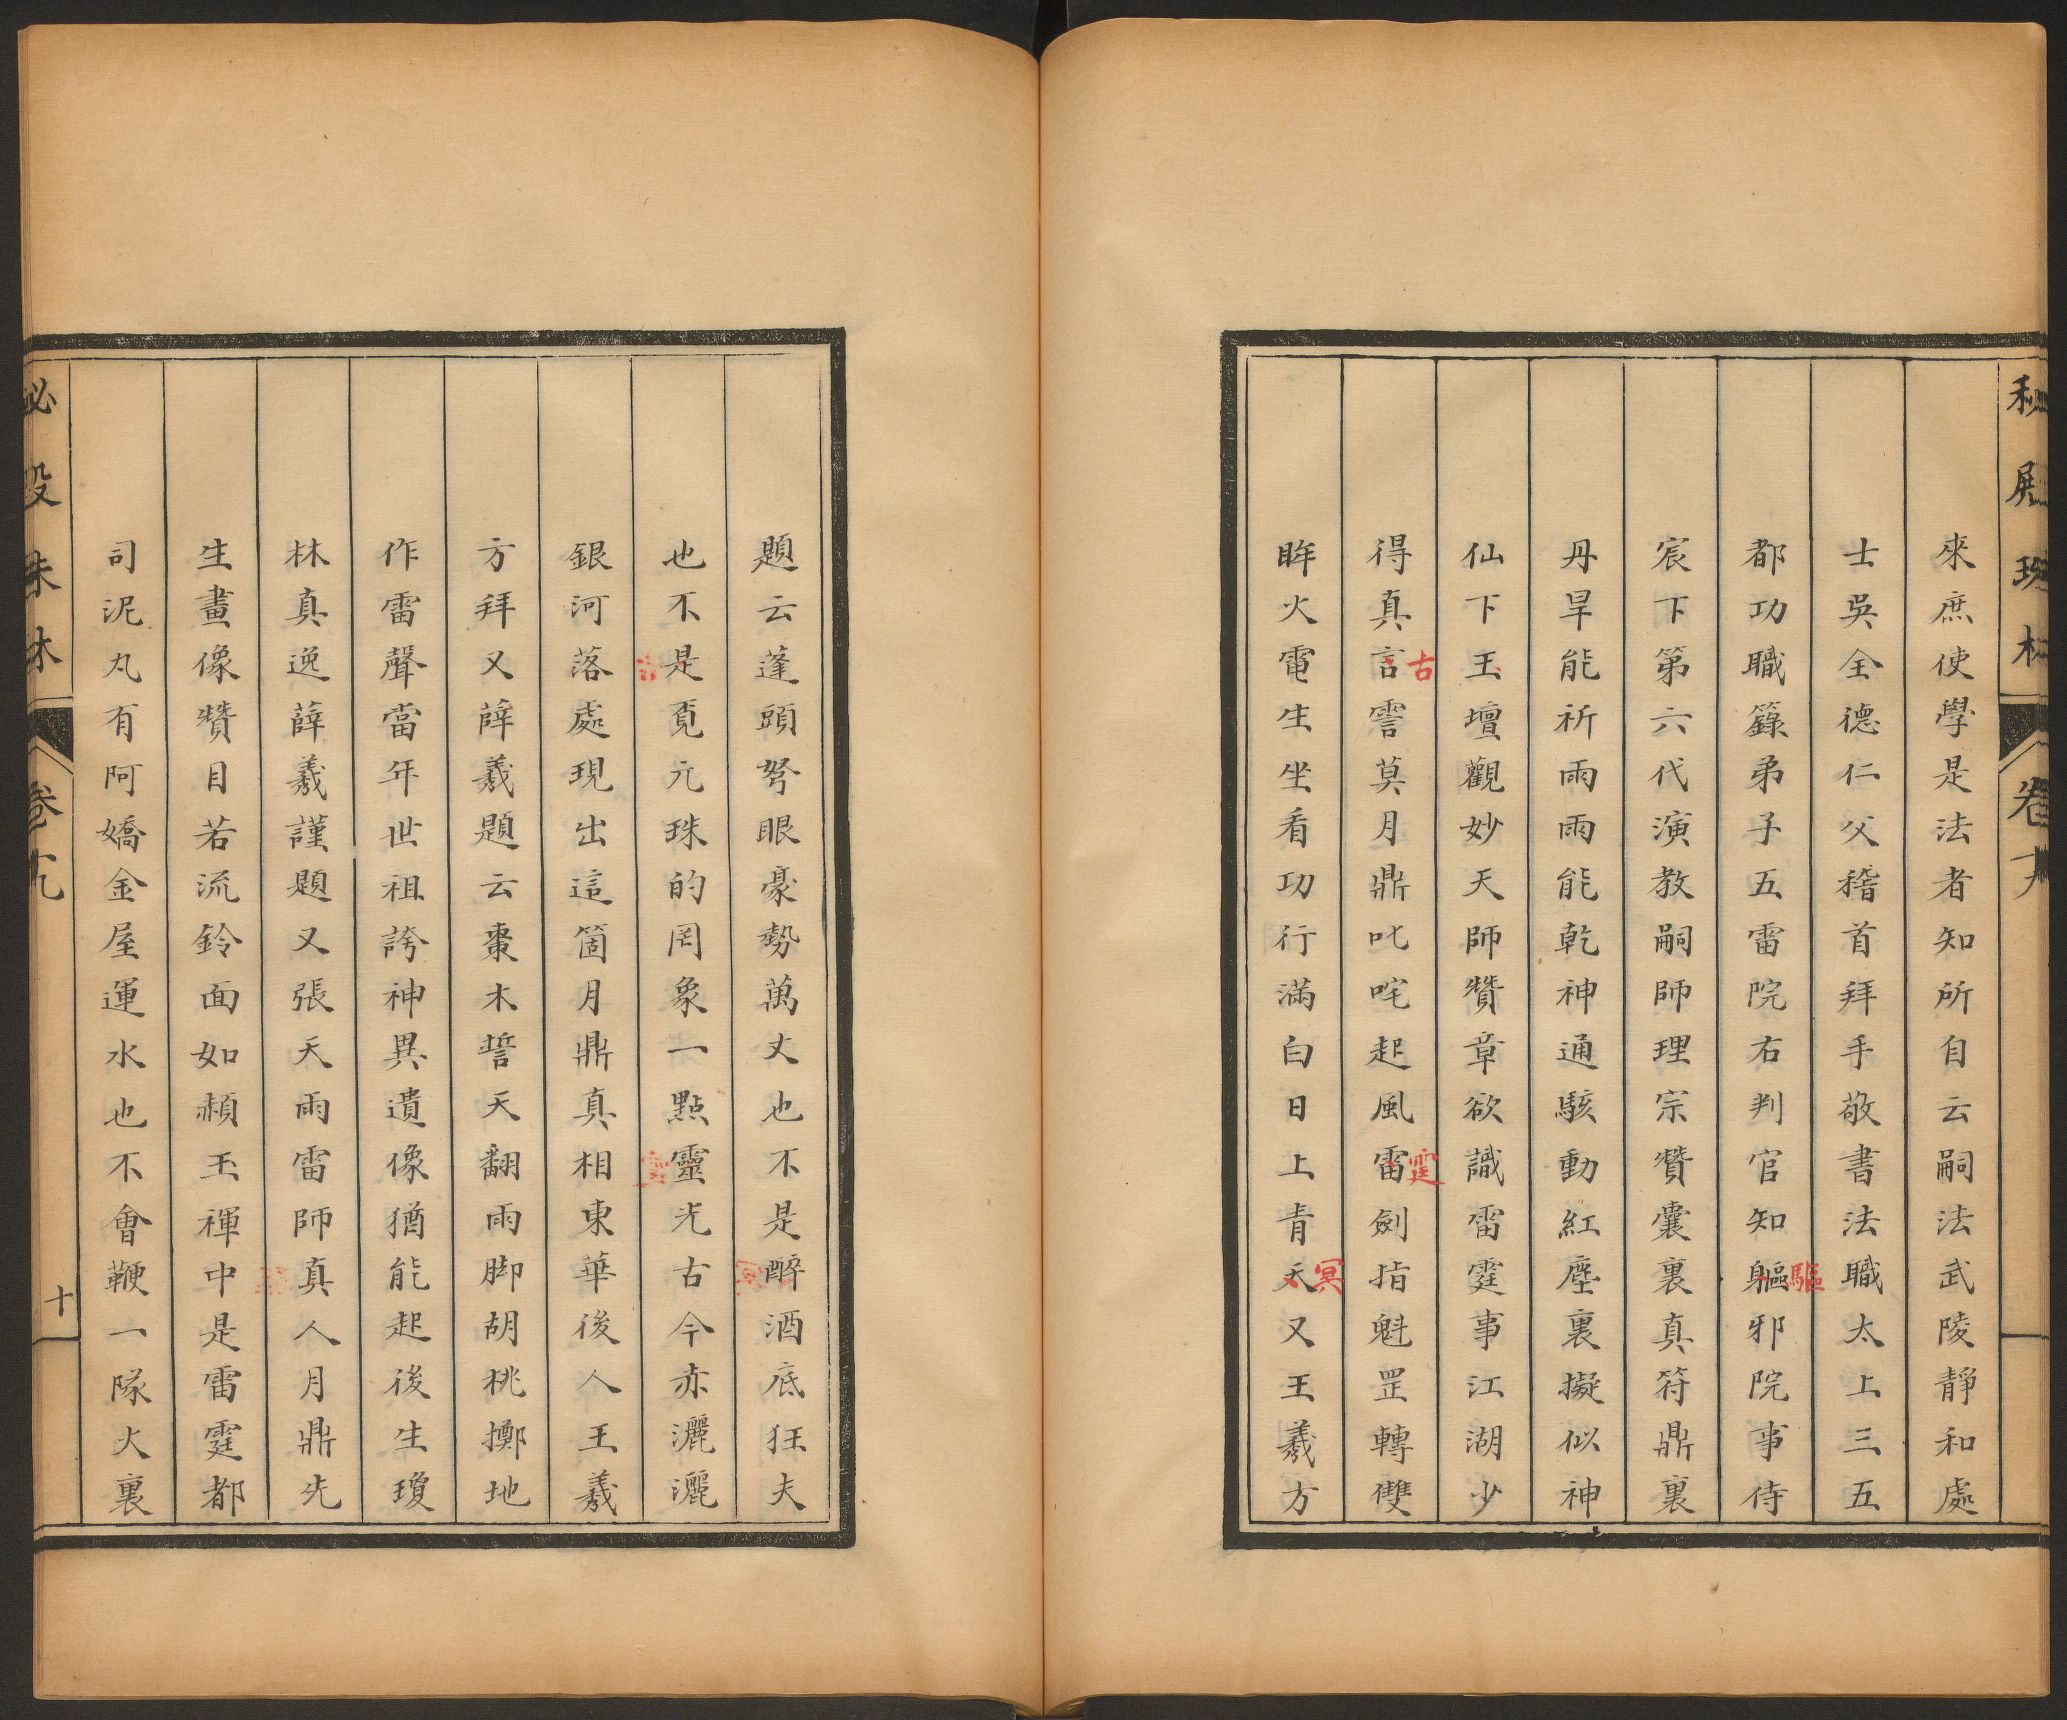 來庶使學是法者知所自云嗣法武陵靜和處
士吳全德仁父稽首拜手敬書法職太上三五
都功職籙弟子五雷院右判官知軀邪院事侍
驅
宸下第六代演教嗣師理宗贊囊裏真符鼎裏
丹旱能祈雨雨能乾神通駭動紅塵裏擬似神
仙下玉壇觀妙天師贊章欲識雷霆事江湖少
得真言霅莫月鼎叱咤起風雷劍指魁罡轉雙
古
霆
眸火電生坐看功行滿白日上青天又王羲方
冥
題云蓬頭努眼豪勢萬丈也不是醉酒底狂夫
也不是覓元珠的罔象一點靈光古今赤灑灑
銀河落處現出這箇月鼎真相東華後人王羲
方拜又薛羲題云棗木誓天翻雨脚胡桃擲地
作雷聲當年世祖誇神異遺像猶能起後生瓊
林真逸薛羲謹題又張天雨雷師真人月鼎先
生畫像贊目若流鈴面如赬玉褌中是雷霆都
司泥丸有阿嬌金屋運水也不會鞭一隊火裏
卷十九
十